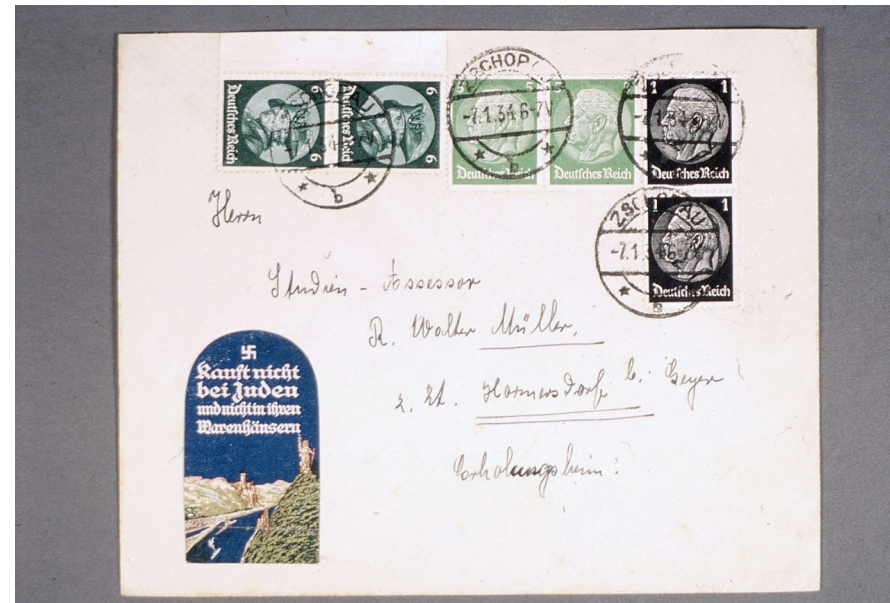 6 Deutsches Reich 6
6 Deutsches Reich 6
5 Deutsches Reich
Deutsches Reich
1 1
Deutsches Reich
1 1
Deutsches Reich
ZSCHOPAU
-7.1.34 6-7V
b
ZSCHOPAU
-7.1.34
b
Herrn
Studien - Assessor
R. Walter Müller,
z. Zt. Hormersdorf b. Geyer
Erholungsheim!
Kauft nicht
bei Juden
und nicht in ihren
Warenhäusern